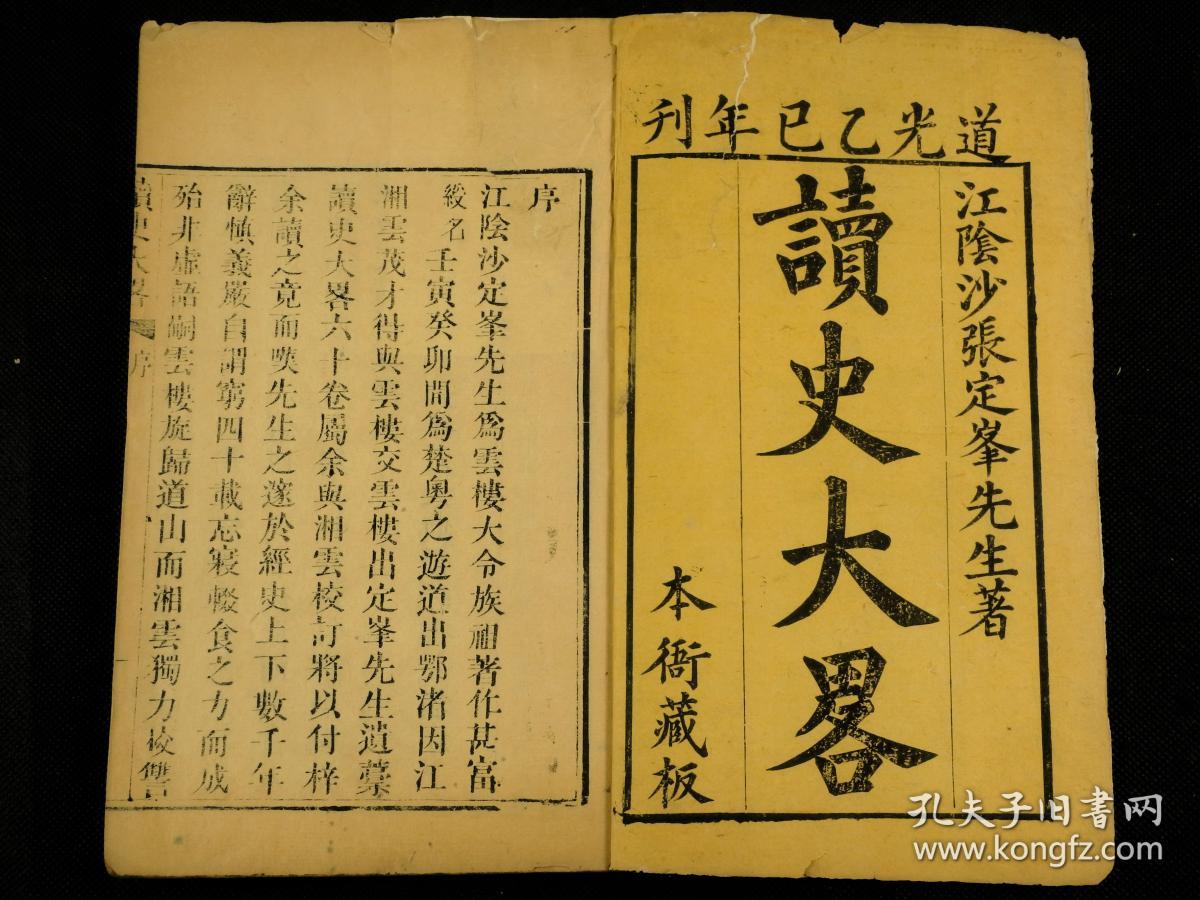 道光乙巳年刊
江陰沙張定峯先生著
讀史大畧
本衙藏板
序
江陰沙定峯先生爲雲樓大令族祖著作甚富
綏名壬寅癸卯間爲楚粵之遊道出鄂渚因江
湘雲茂才得與雲樓交雲樓出定峯先生遺藁
讀史大畧六十卷屬余與湘雲校訂將以付梓
余讀之竟而嘆先生之邃於經史上下數千年
辭慎義嚴自謂窮四十載忘寢輟食之力而成
殆非虛語嗣雲樓旋歸道山而湘雲獨力校讐
讀史大畧 序
孔夫子旧书网
www.kongfz.com